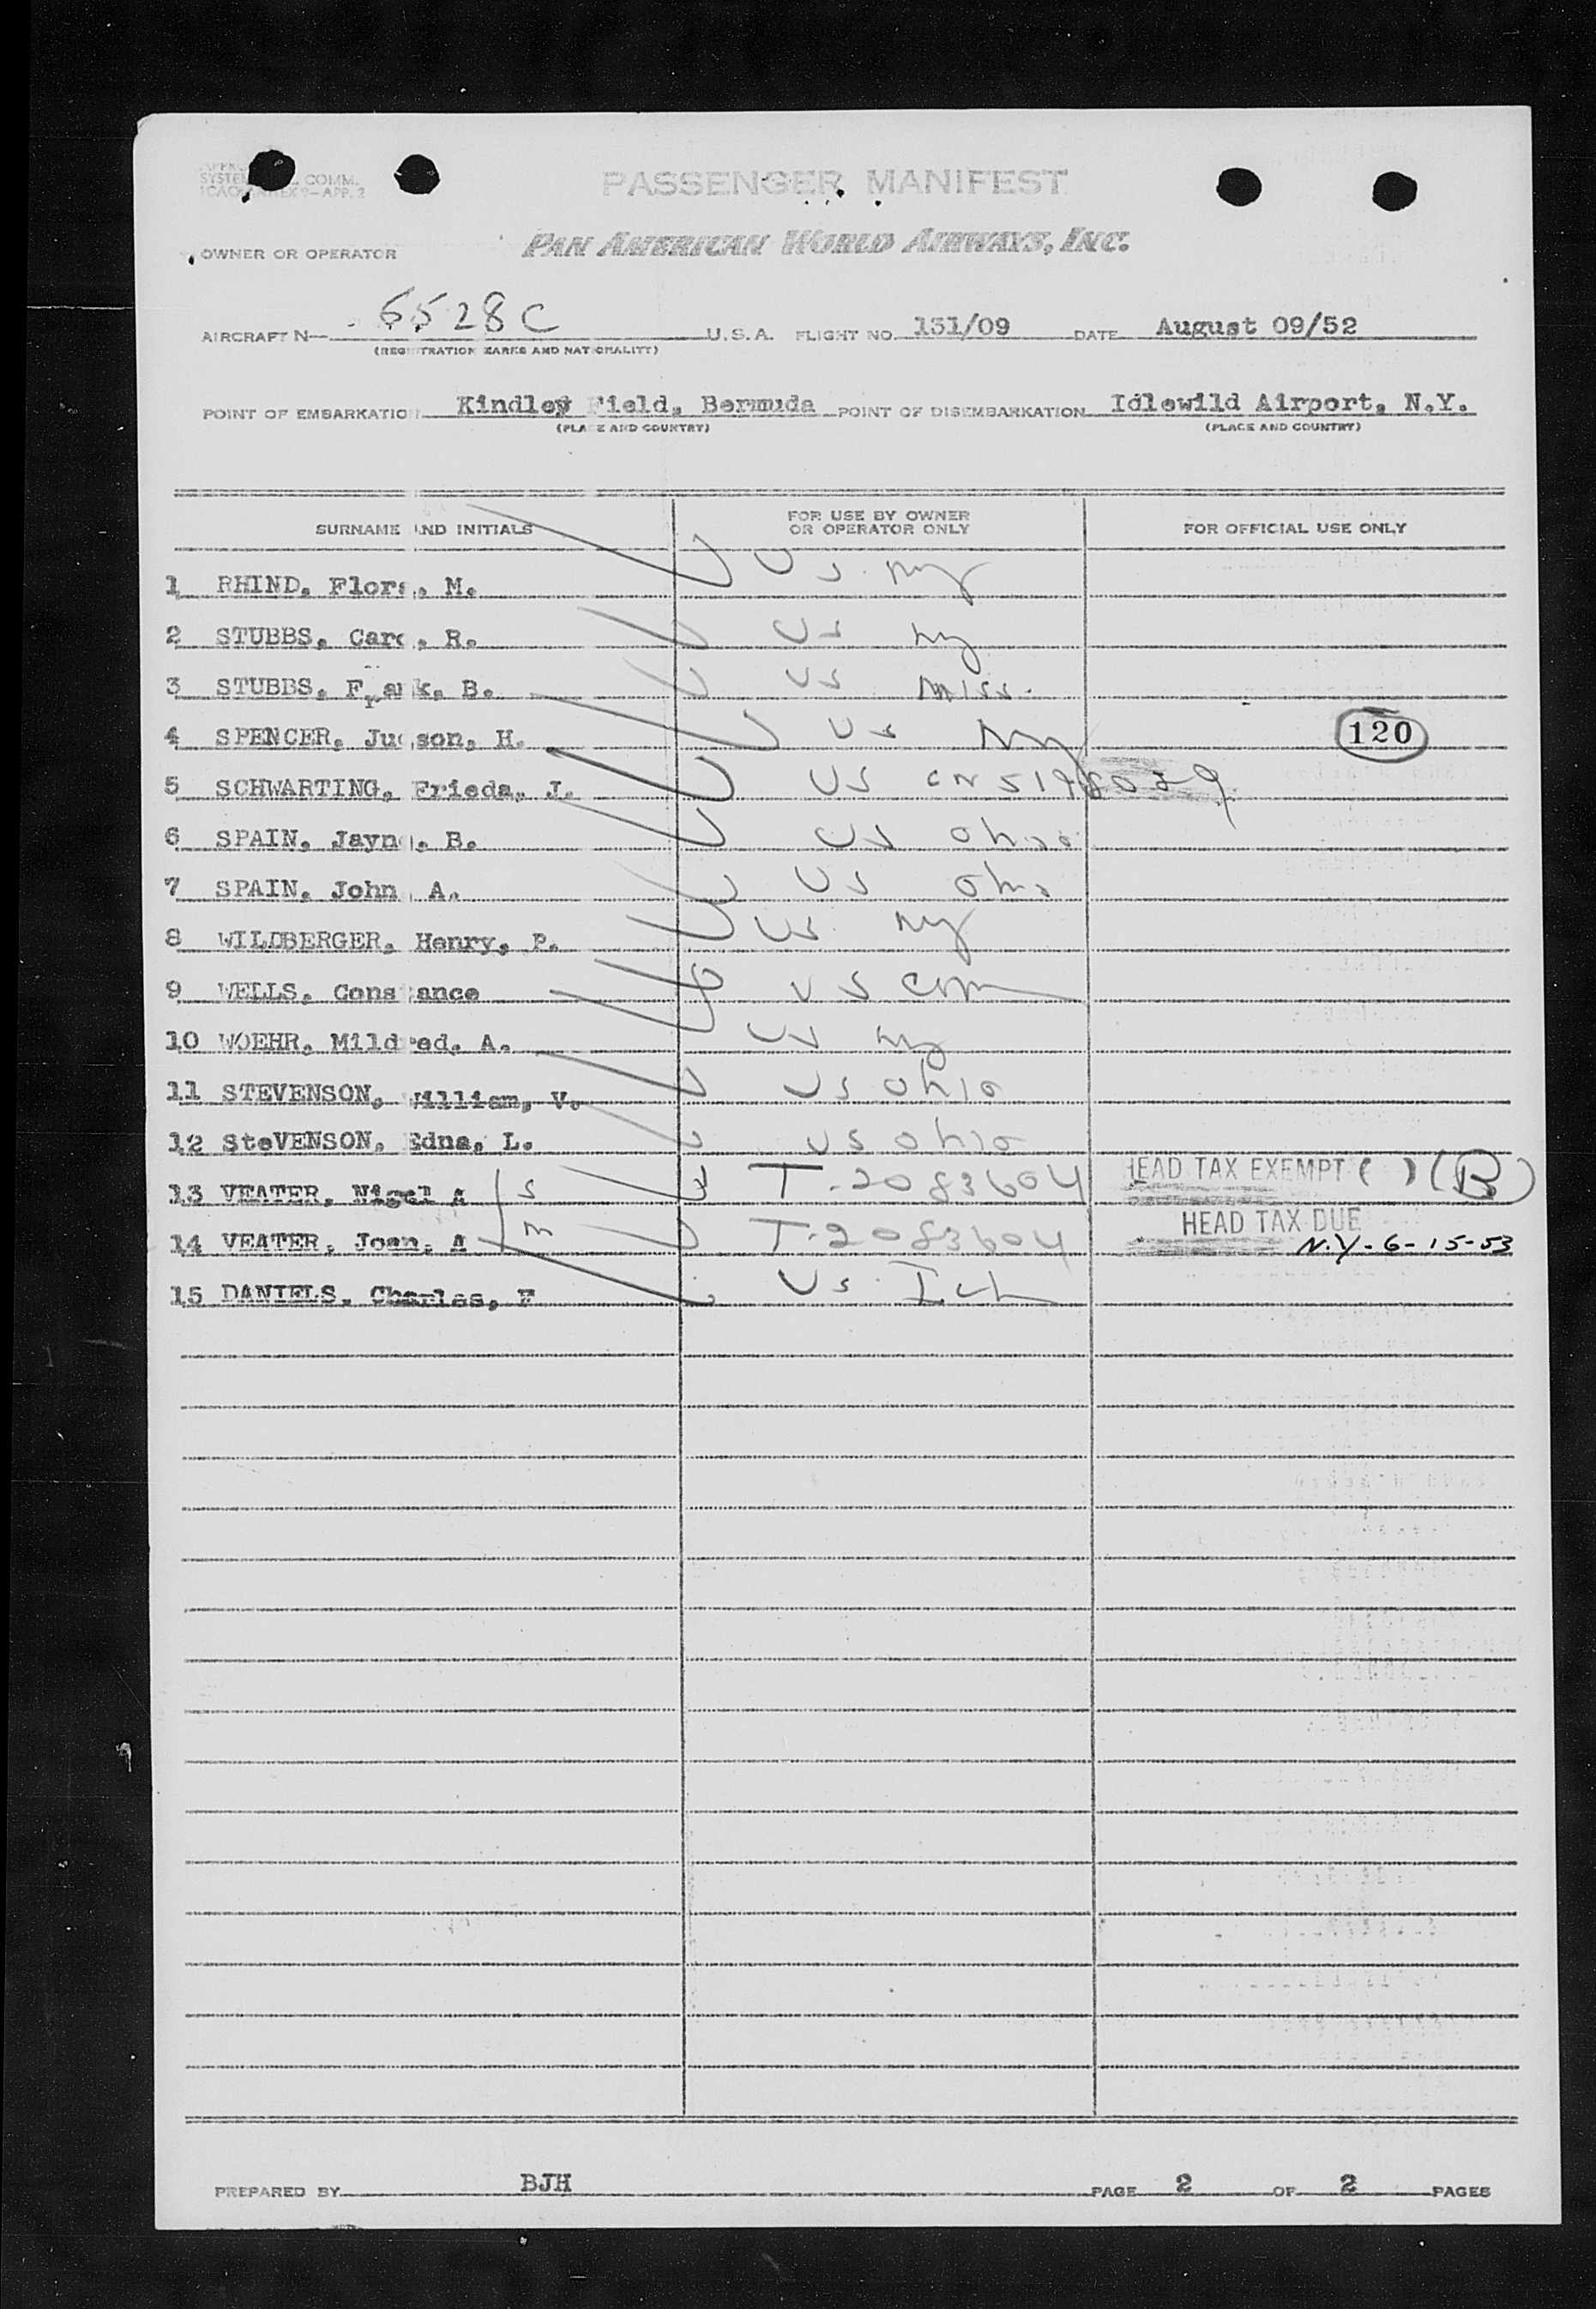 SYSTEM COMM.
ICAO ANNEX 9—APP. 2
PASSENGER MANIFEST
OWNER OR OPERATOR PAN AMERICAN WORLD AIRWAYS, INC.
AIRCRAFT N— 6528C U.S.A. FLIGHT NO. 131/09 DATE August 09/52
(REGISTRATION MARKS AND NATIONALITY)
POINT OF EMBARKATION Kindley Field, Bermuda POINT OF DISEMBARKATION Idlewild Airport, N.Y.
(PLACE AND COUNTRY) (PLACE AND COUNTRY)
SURNAME AND INITIALS FOR USE BY OWNER OR OPERATOR ONLY FOR OFFICIAL USE ONLY
1 RHIND, Flora, M. US. NY
2 STUBBS, Caro, R. US NY
3 STUBBS, Frank, B. US Miss.
4 SPENCER, Judson, H. US NY 120
5 SCHWARTING, Frieda, J. US CN 5198029
6 SPAIN, Jayne, B. US Ohio
7 SPAIN, John, A. US Ohio
8 WILDBERGER, Henry, P. US. NY
9 WELLS, Constance US Conn
10 WOEHR, Mildred, A. US NY
11 STEVENSON, William, V. US Ohio
12 SteVENSON, Edna, L. US Ohio
13 VEATER, Nigel A S T-2083604 HEAD TAX EXEMPT ( ) (B)
14 VEATER, Joan, A M T-2083604 HEAD TAX DUE
N.Y-6-15-53
15 DANIELS, Charles, F US.
PREPARED BY BJH PAGE 2 OF 2 PAGES